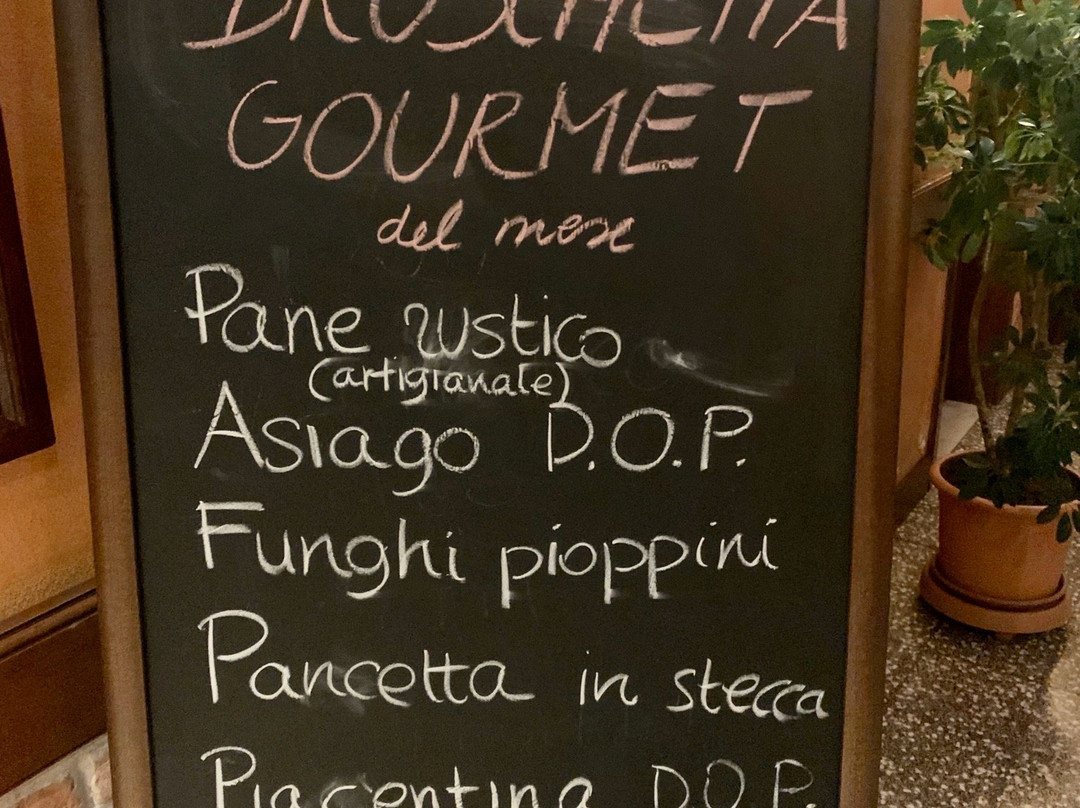 BRUSCHETTA
GOURMET
del mese
Pane rustico
(artigianale)
Asiago D.O.P.
Funghi pioppini
Pancetta in stecca
Piacentina D.O.P.